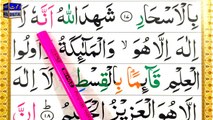 بِالْاَسْحَارِ ﴿١٧﴾ شَهِدَ اللّٰهُ اَنَّهٗ
اِلٰهَ اِلَّا هُوَ ۙ وَالْمَلٰٓئِكَةُ وَاُولُوا
الْعِلْمِ قَآئِمًاۢ بِالْقِسْطِ ؕ لَاۤ اِلٰهَ
اِلَّا هُوَ الْعَزِيْزُ الْحَكِيْمُ ﴿١٨﴾ اِنَّ